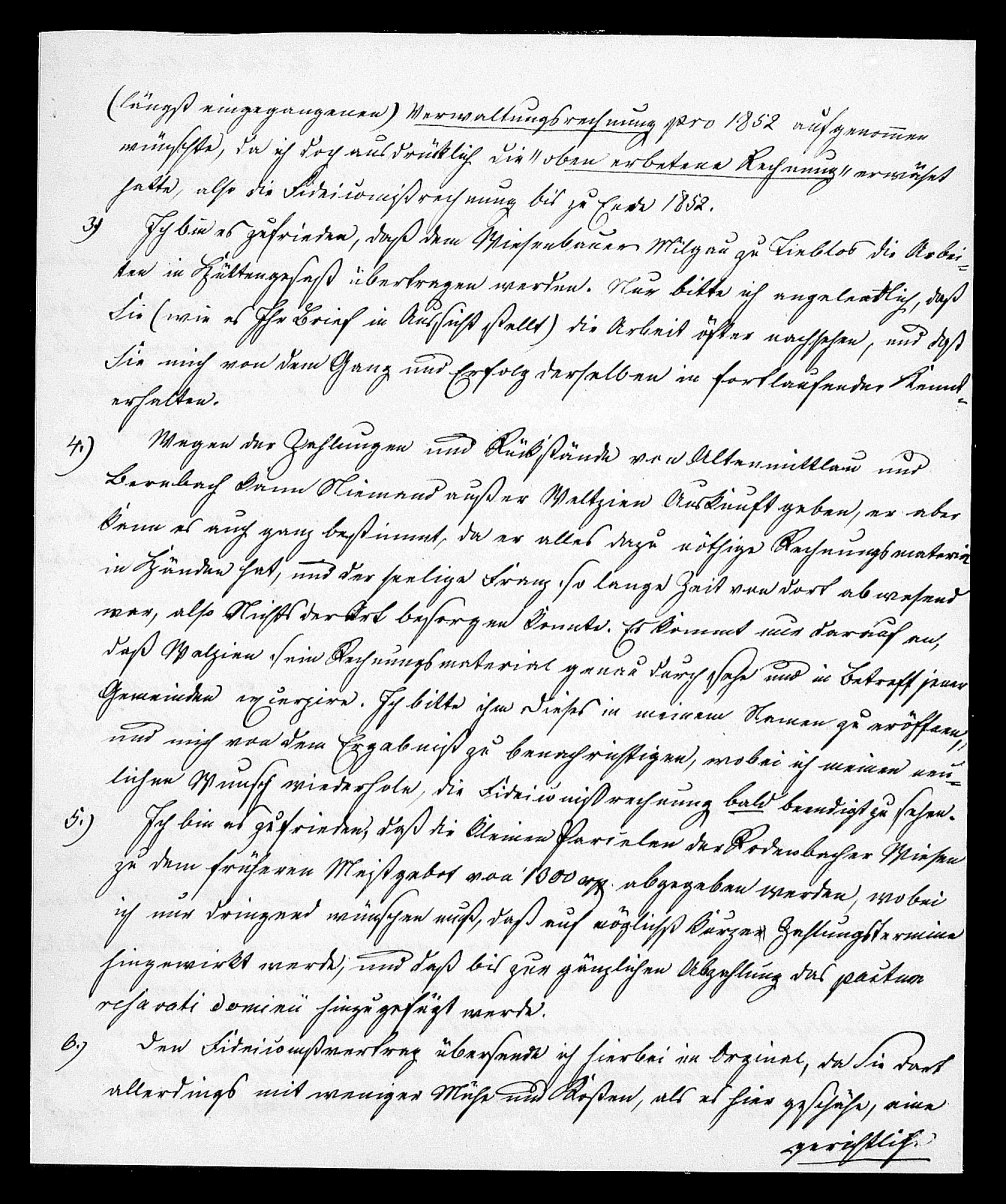 (längst eingegangenen) Verwaltungsrechnung pro 1852 aufgenommen
wünschte, da ich doch ausdrücklich die "oben erbetene Rechnung" erwähnt
hatte, also die Fideicomißrechnung bis zu Ende 1852.
3) Ich bin es zufrieden, daß dem Wiesenbauer Milgau zu Lieblos die Arbei-
ten in Hüttengesäß übertragen werden. Nur bitte ich angelegentlich, daß
Sie (wie es Ihr Brief in Aussicht stellt) die Arbeit öfter nachsehen, und daß
Sie mich von dem Gang und Erfolg derselben in fortlaufender Kennt-
erhalten.
4.) Wegen der Zahlungen und Rückstände von Altenmittlau und
Bernbach kann Niemand außer Weltzien Auskunft geben, er aber
kann es auch ganz bestimmt, da er alles dazu nöthige Rechnungsmaterial
in Händen hat, und der seelige Franz so lange Zeit von dort abwesend
war, also Nichts der Art besorgen konnte. Es kommt nur darauf an,
daß Welzien sein Rechnungsmaterial genau durchsehe und in Betreff jener
Gemeinden excerpire. Ich bitte ihm dieses in meinem Namen zu eröffnen,
und mich von dem Ergebniß zu benachrichtigen, wobei ich meinen neu-
lichen Wunsch wiederhole, die Fideicomißrechnung bald beendigt zu sehen.
5.) Ich bin es zufrieden, daß die kleinen Parcelen der Rodenbacher Wiesen
zu dem früheren Meistgebot von 1300 abgegeben werden, wobei
ich nur dringend wünschen muß, daß auf möglichst kurze Zahlungstermine
hingewirkt werde, und daß bis zur gänzlichen Abzahlung das pactum
reservati dominii hinzugefügt werde.
6.) Den Fideicomißvertrag übersende ich hierbei im Orginal, da Sie dort
allerdings mit weniger Mühe und Kosten, als es hier geschähe, eine
gerichtliche